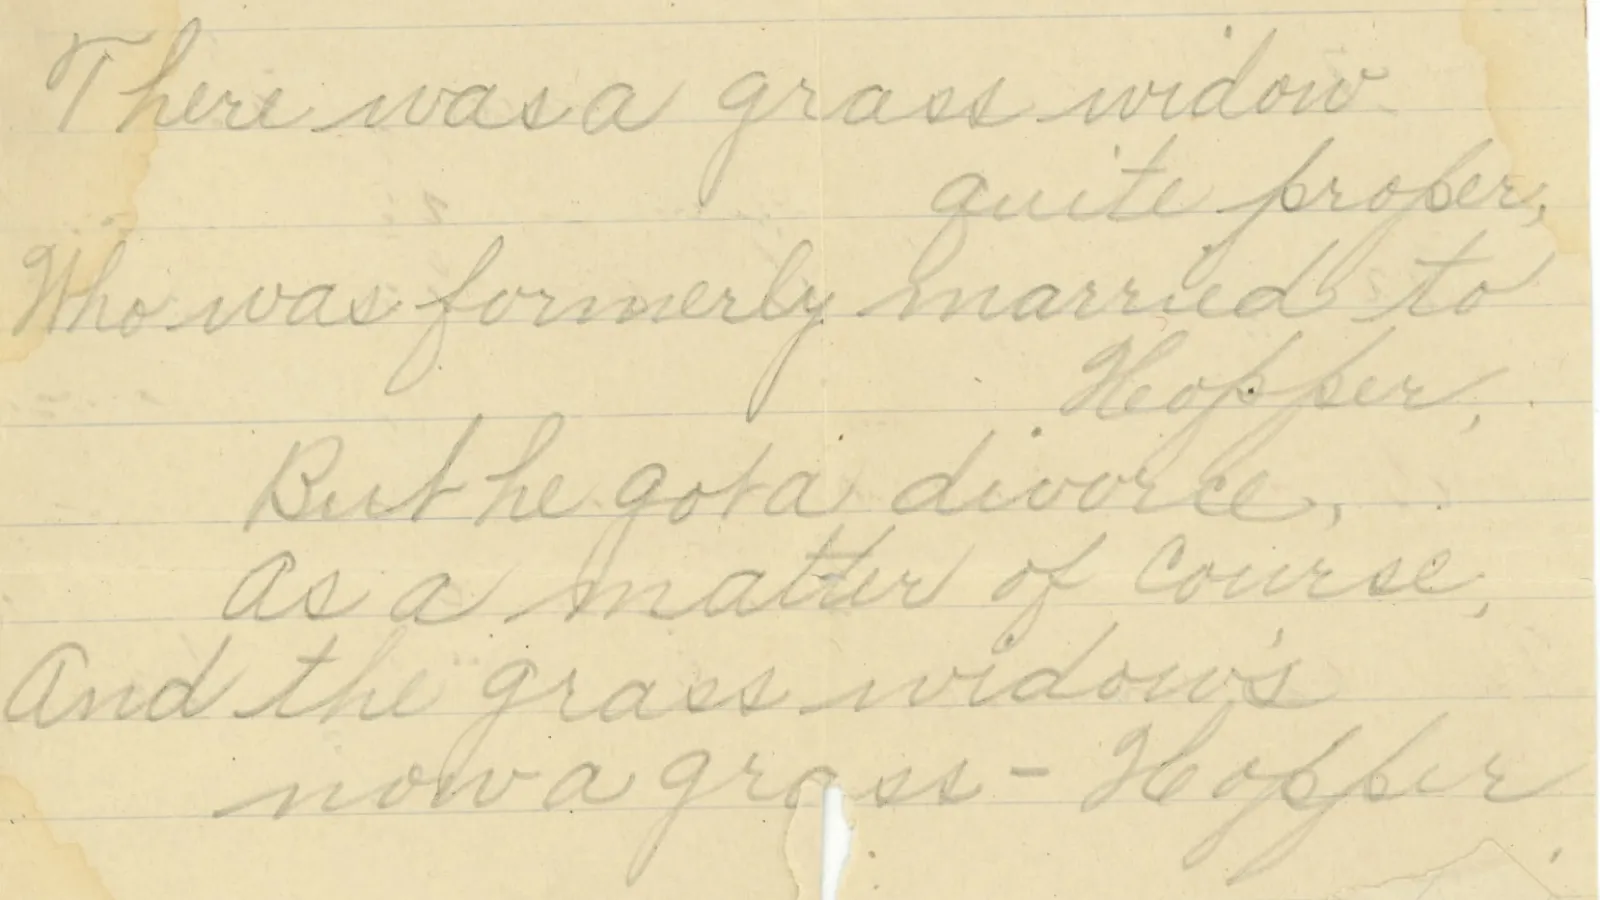 There was a grass widow
quite proper,
Who was formerly married to
Hopper,
But he got a divorce,
As a matter of course,
And the grass widow's
now a grass-Hopper